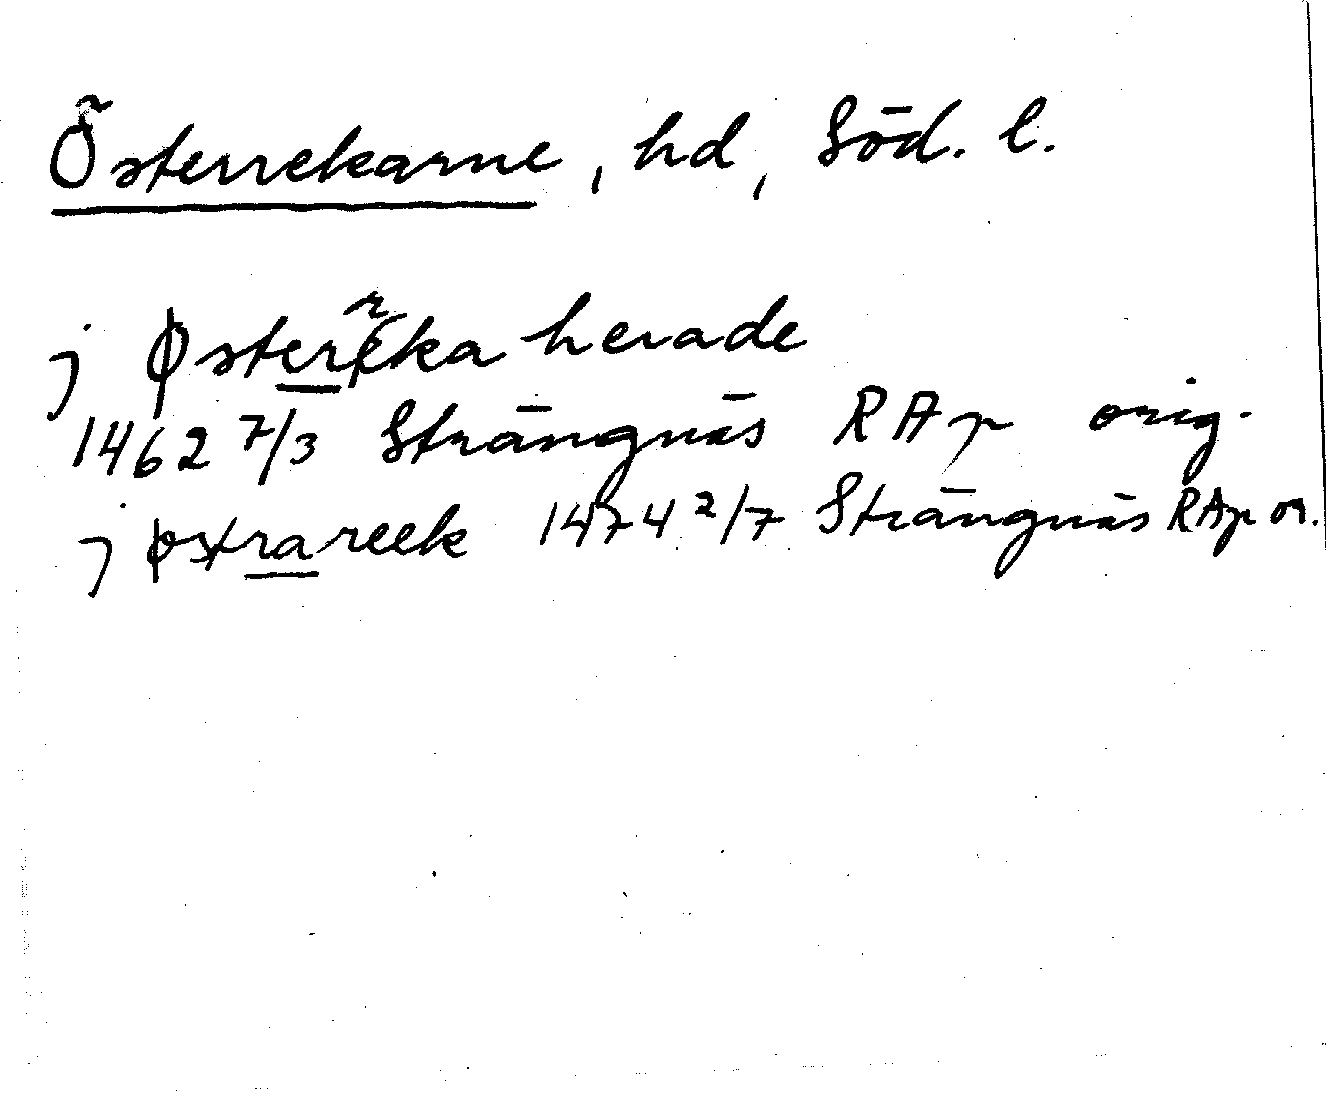 Österrekarne, hd, Söd. l.
j Østerreka herade
1462 7/3 Strängnäs RAp orig.
j østrareek 1474 2/7 Strängnäs RAp or.